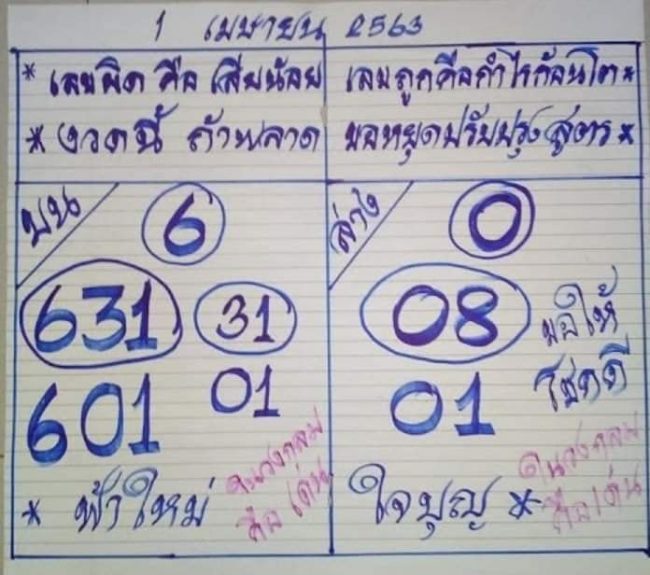 1 เมษายน 2563
* เลขผิด คือ เสียน้อย
* งวดนี้ ถ้าพลาด
เลขถูกคือกำไรก้อนโต *
ขอหยุดปรับปรุงสูตร *
บน
6
631 31
601 01
* ฟ้าใหม่
ในวงกลม
คือ เด่น
ล่าง
0
08
01
ขอให้
โชคดี
ใจบุญ *
ในวงกลม
คือเด่น